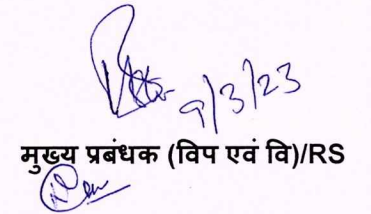 9/3/23
मुख्य प्रबंधक (विप एवं वि)/RS